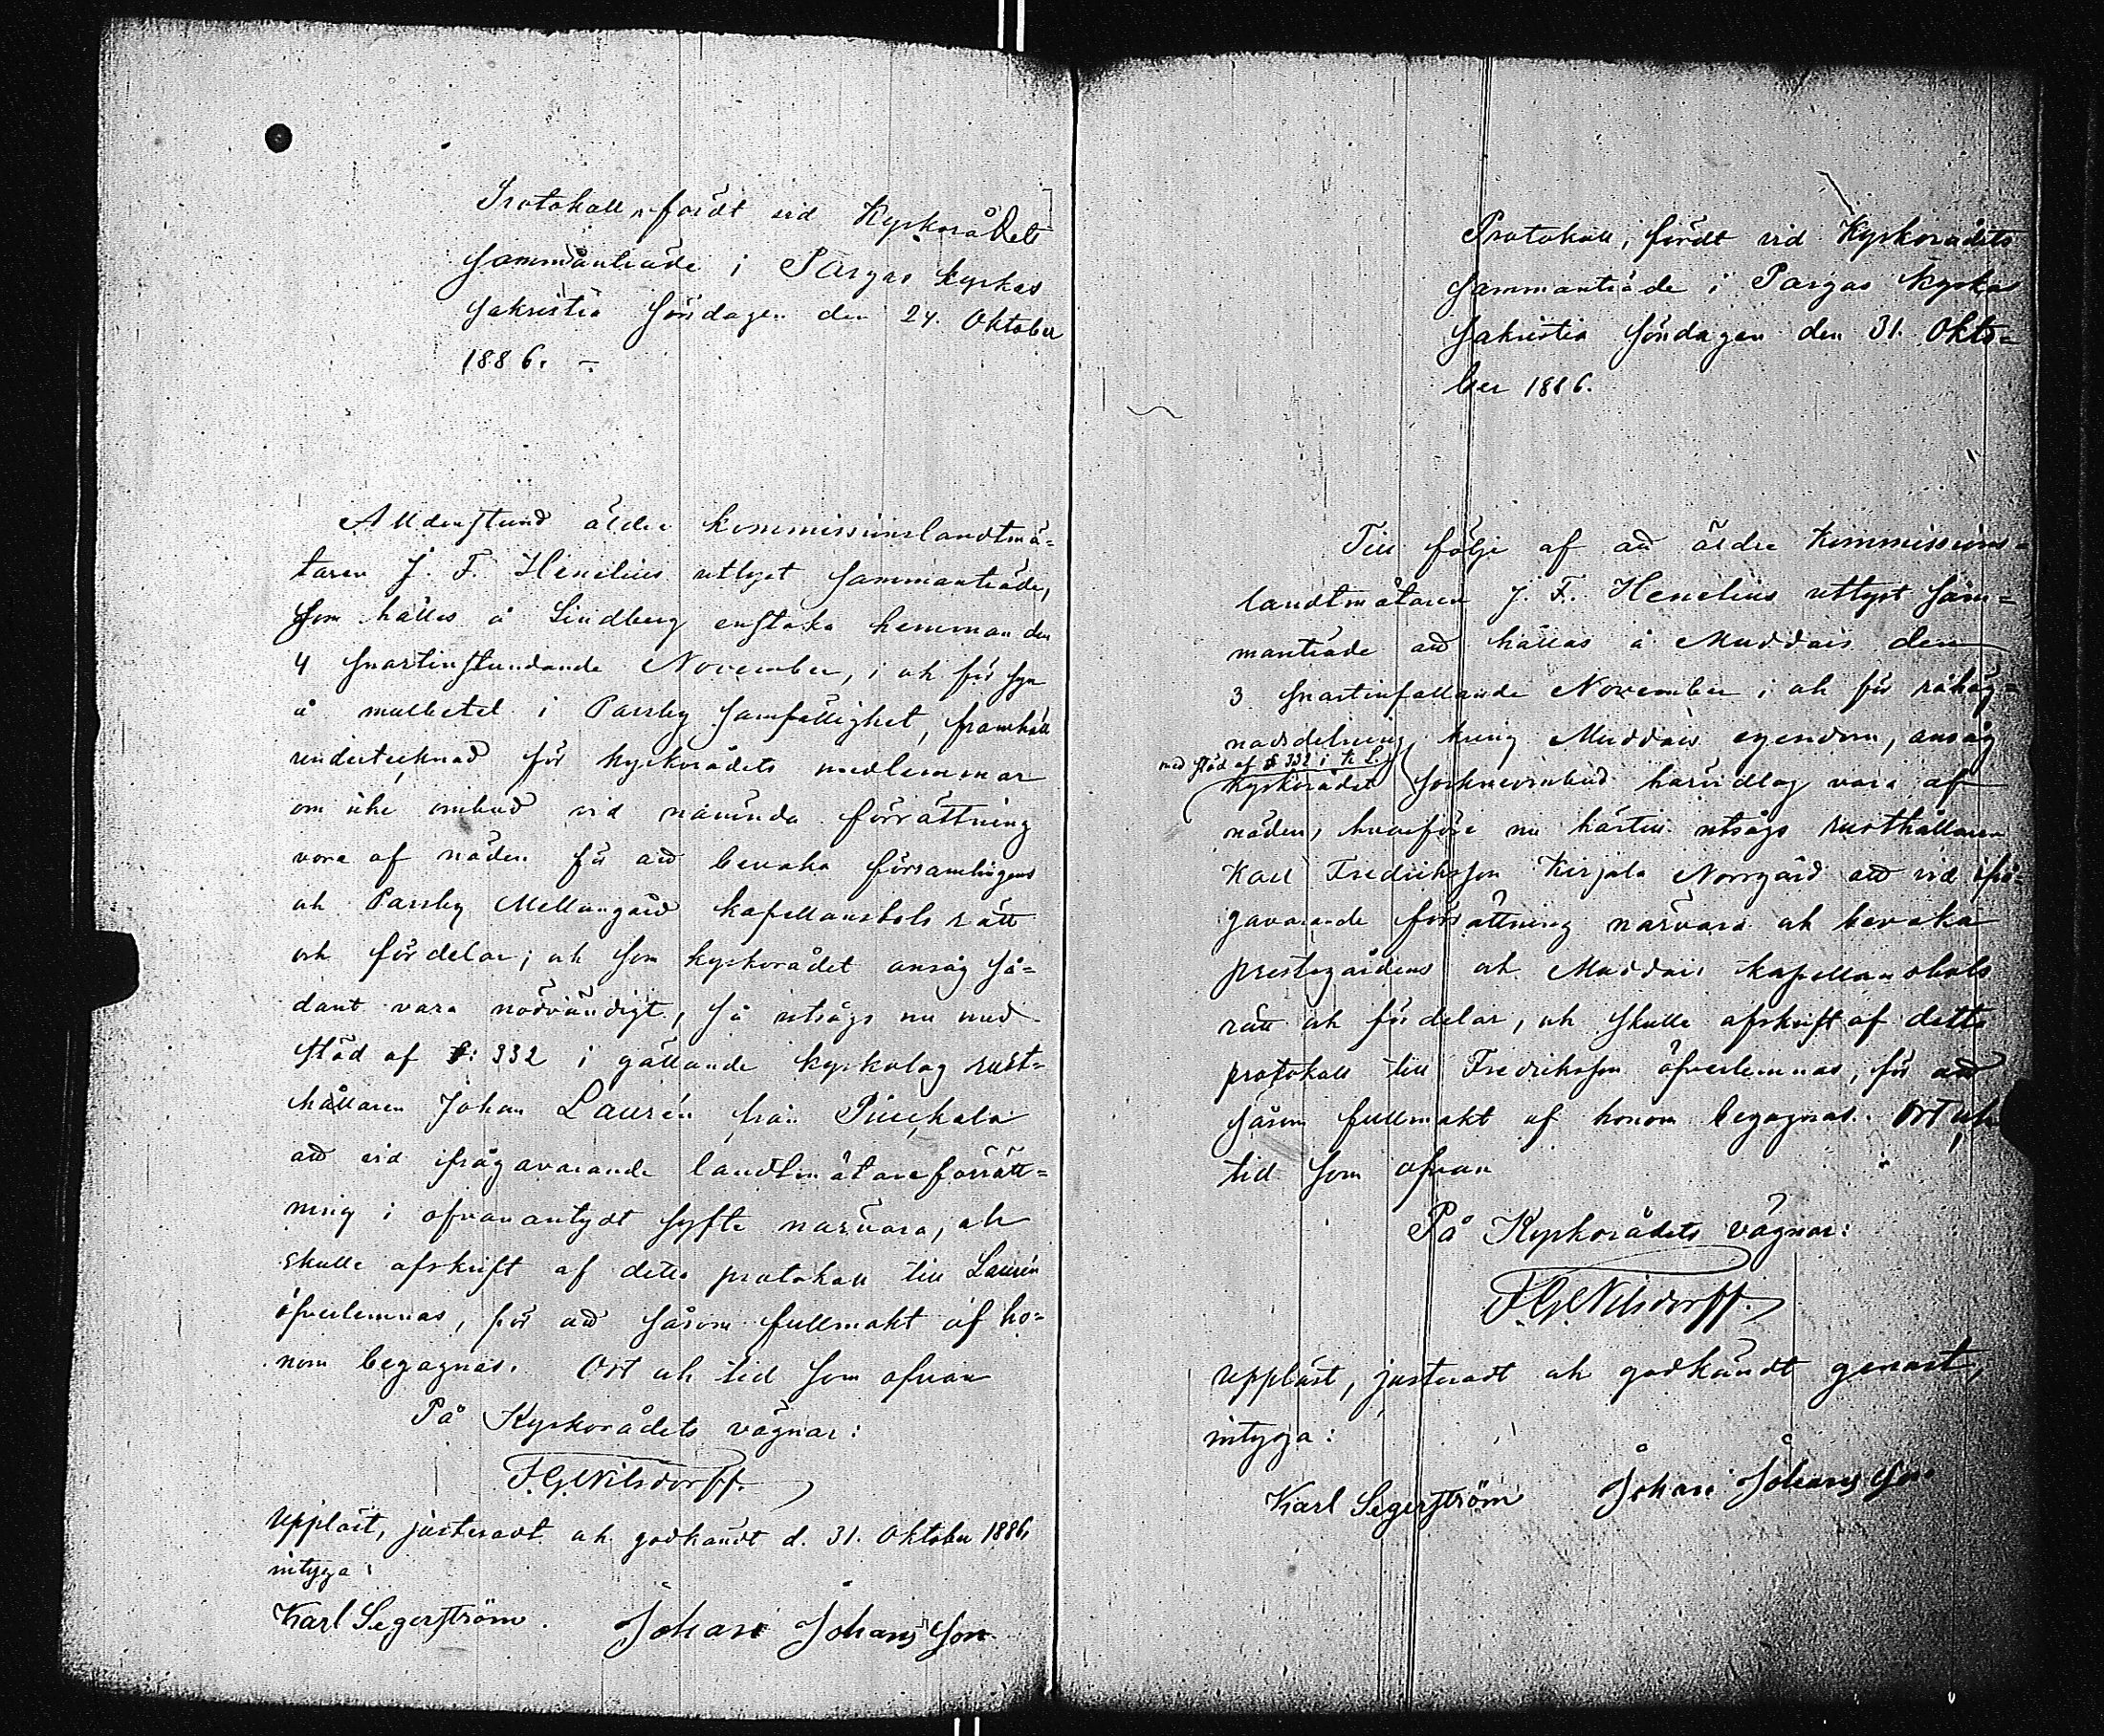 Protokoll, fördt vid Kyrkorådets
sammanträde i Pargas kyrkas
sakristia söndagen den 24. Oktober
1886. –
Alldenstund äldre kommissionslandtmä=
taren J. F. Henelius utlyst sammanträde,
som hålles å Lindberg enstaka hemman den
4 snartinstundande November, i och för syn
å mulbetet i Parsby samfällighet, framhöll
undertecknad för kyrkorådets medlemmar
om icke ombud vid nämnda förrättning
vore af nöden för att bevaka församlingens
och Parsby Mellangård kapellansbols rätt
och fördelar; och som kyrkorådet ansåg så=
dant vara nödvändigt, så utsågs nu med
stöd af §: 332 i gällande kyrkolag rust=
hållaren Johan Laurén från
att vid ifrågavarande landtmätareförrätt=
ning i ofvanantydt syfte närvara, och
skulle afskrift af detta protokoll till Laurén
öfverlemnas, för att såsom fullmakt af ho=
nom begagnas. Ort och tid som ofvan
På Kyrkorådets vägnar:
F. G. Nilsdorff.
Uppläst, justeradt och godkändt d. 31. Oktober 1886,
intyga:
Karl Segerström. Johan Johansson
Protokoll, fördt vid Kyrkorådets
sammanträde i Pargas kyrkas
sakristia söndagen den 31. Okto=
ber 1886.
Till följe af att äldre Kommissions=
landtmätaren J. F. Henelius utlyst sam=
manträde att hållas å Muddais den
3 snartinfallande November i och för råhäg=
nadsdelning kring Muddais egendom, ansåg
med stöd af § 332 i K. L.
Kyrkorådet sockneombud härvidlag vara af
nöden, hvarföre nu härtill utsågs rusthållaren
Karl Fredriksson Kirjala Norrgård att vid ifrå=
gavarande förrättning närvara och bevaka
prestegårdens och Muddais kapellansbols
rätt och fördelar, och skulle afskrift af detta
protokoll till Fredriksson öfverlemnas, för att
såsom fullmakt af honom begagnas. Ort och
tid som ofvan
På Kyrkorådets vägnar:
F. G. Nilsdorff.
Uppläst, justeradt och godkändt genast,
intyga:
Karl Segerström Johan Johansson